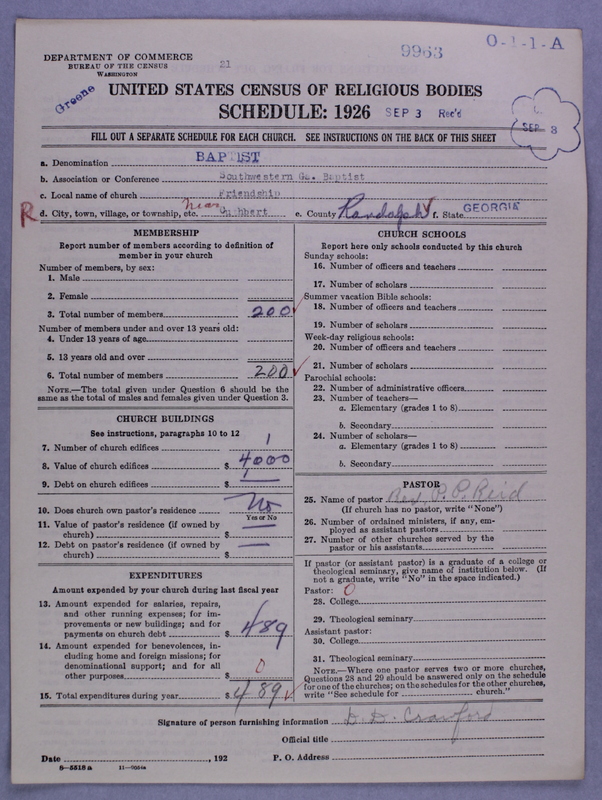 DEPARTMENT OF COMMERCE
BUREAU OF THE CENSUS
WASHINGTON
21
9963
O-1-1-A
Greene
UNITED STATES CENSUS OF RELIGIOUS BODIES
SCHEDULE: 1926
SEP 3 Rec'd
SEP 3
FILL OUT A SEPARATE SCHEDULE FOR EACH CHURCH. SEE INSTRUCTIONS ON THE BACK OF THIS SHEET
a. Denomination BAPTIST
b. Association or Conference Southwestern Ga. Baptist
c. Local name of church Friendship
R d. City, town, village, or township, etc. near Cuthbert e. County Randolph f. State GEORGIA
MEMBERSHIP
Report number of members according to definition of
member in your church
Number of members, by sex:
1. Male
2. Female
3. Total number of members 200
Number of members under and over 13 years old:
4. Under 13 years of age
5. 13 years old and over
6. Total number of members 200
NOTE.—The total given under Question 6 should be the
same as the total of males and females given under Question 3.
CHURCH BUILDINGS
See instructions, paragraphs 10 to 12
7. Number of church edifices 1
8. Value of church edifices $ 4000
9. Debt on church edifices $
10. Does church own pastor's residence No
Yes or No
11. Value of pastor's residence (if owned by
church) $ —
12. Debt on pastor's residence (if owned by
church) $ —
EXPENDITURES
Amount expended by your church during last fiscal year
13. Amount expended for salaries, repairs,
and other running expenses; for im-
provements or new buildings; and for
payments on church debt $ 489
14. Amount expended for benevolences, in-
cluding home and foreign missions; for
denominational support; and for all
other purposes $ 0
15. Total expenditures during year $ 489
CHURCH SCHOOLS
Report here only schools conducted by this church
Sunday schools:
16. Number of officers and teachers
17. Number of scholars
Summer vacation Bible schools:
18. Number of officers and teachers
19. Number of scholars
Week-day religious schools:
20. Number of officers and teachers
21. Number of scholars
Parochial schools:
22. Number of administrative officers
23. Number of teachers—
a. Elementary (grades 1 to 8)
b. Secondary
24. Number of scholars—
a. Elementary (grades 1 to 8)
b. Secondary
PASTOR
25. Name of pastor Rev. P. P. Reid
(If church has no pastor, write "None")
26. Number of ordained ministers, if any, em-
ployed as assistant pastors
27. Number of other churches served by the
pastor or his assistants
If pastor (or assistant pastor) is a graduate of a college or
theological seminary, give name of institution below. (If
not a graduate, write "No" in the space indicated.)
Pastor: 0
28. College
29. Theological seminary
Assistant pastor:
30. College
31. Theological seminary
NOTE.—Where one pastor serves two or more churches,
Questions 28 and 29 should be answered only on the schedule
for one of the churches; on the schedules for the other churches,
write "See schedule for church."
Signature of person furnishing information D. D. Crawford
Official title
Date , 192 P. O. Address
8—5518 a